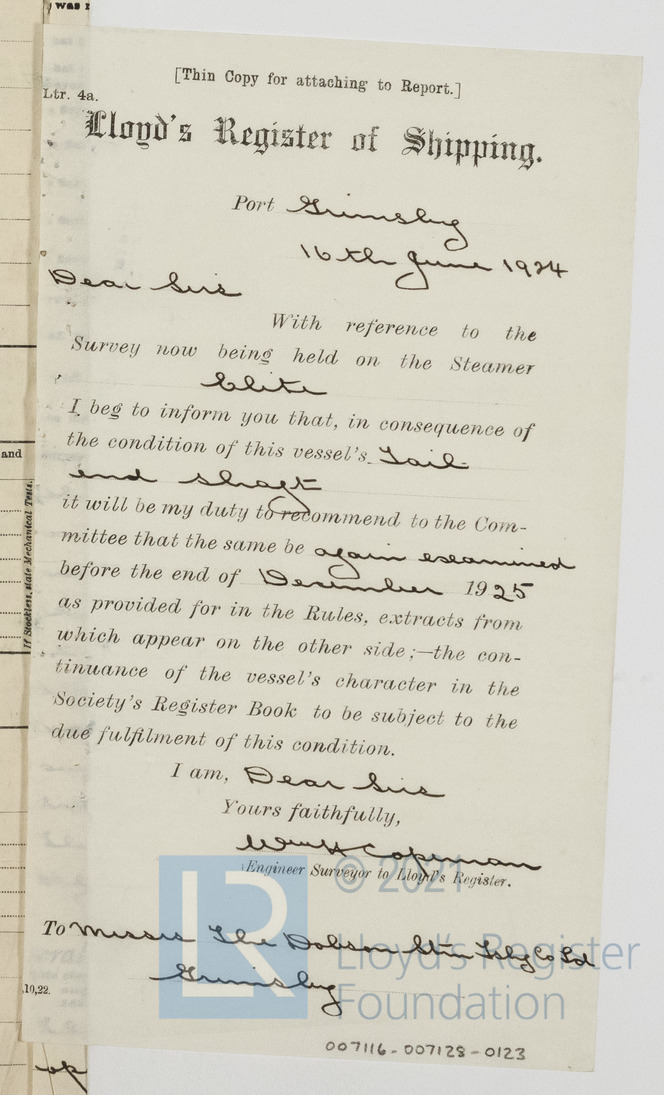 was
[Thin Copy for attaching to Report.]
Ltr. 4a.
Lloyd's Register of Shipping.
Port Grimsby
16th June 1924
Dear Sirs
With reference to the
Survey now being held on the Steamer
Elite
I beg to inform you that, in consequence of
the condition of this vessel's Tail
end shaft
it will be my duty to recommend to the Com-
mittee that the same be again examined
before the end of December 1925
as provided for in the Rules, extracts from
which appear on the other side;—the con-
tinuance of the vessel's character in the
Society's Register Book to be subject to the
due fulfilment of this condition.
I am, Dear Sirs
Yours faithfully,
Wm H Copeman
Engineer Surveyor to Lloyd's Register.
To Messrs The Dobson Stm Fshg Co Ld
Grimsby
10,22.
007116-007128-0123
and
If Stockless, state Mechanical Tests.
LR
© 2021
Lloyd's Register
Foundation